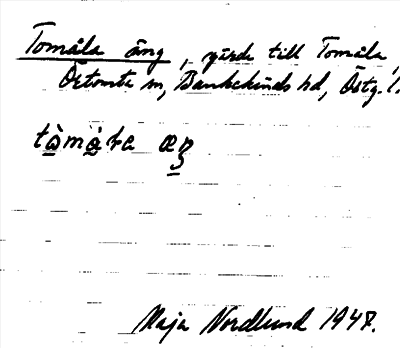 Tomåla äng, gärde till Tomåla,
Örtomta sn, Bankekinds hd, Östg. l.
tòmå̀ra æŋ
Maja Nordlund 1947.